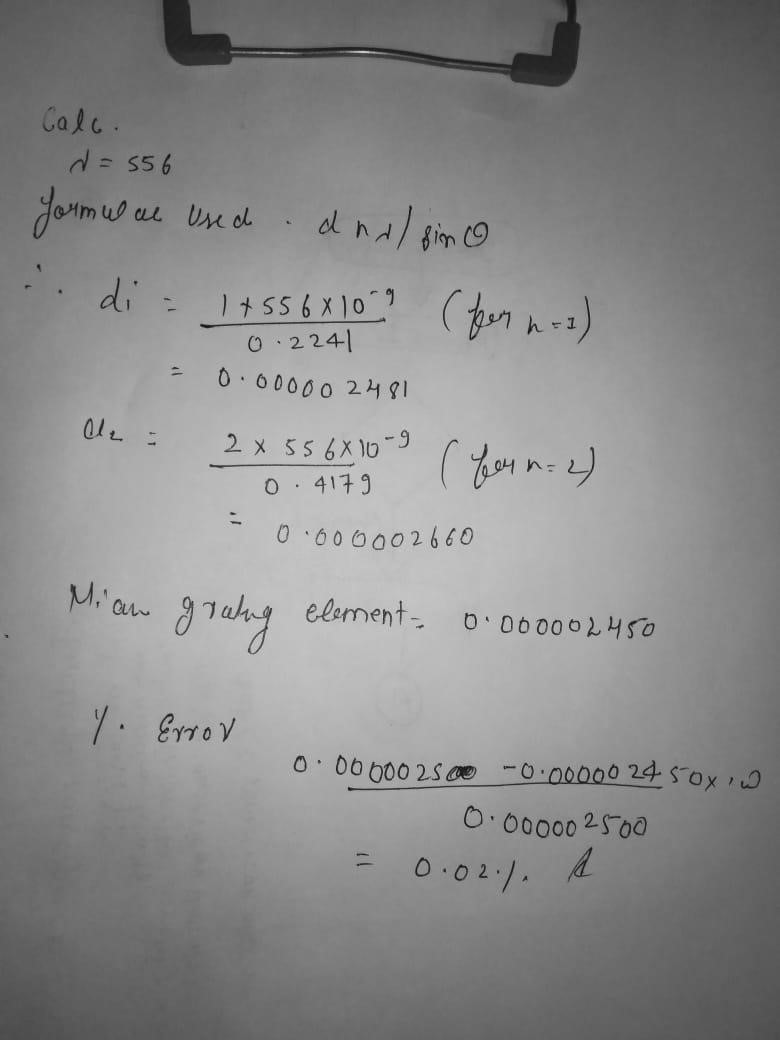 Calc.
λ = 556
formulae Used . d nλ/sinθ
∴ di = 1+556×10⁻⁹ (for n=1)
0.2241
= 0.000002481
d₂ = 2 × 556×10⁻⁹ (for n=2)
0.4179
= 0.000002660
Mian grating element = 0.000002450
%. Error
0.000002500 -0.000002450×100
0.000002500
= 0.02%.